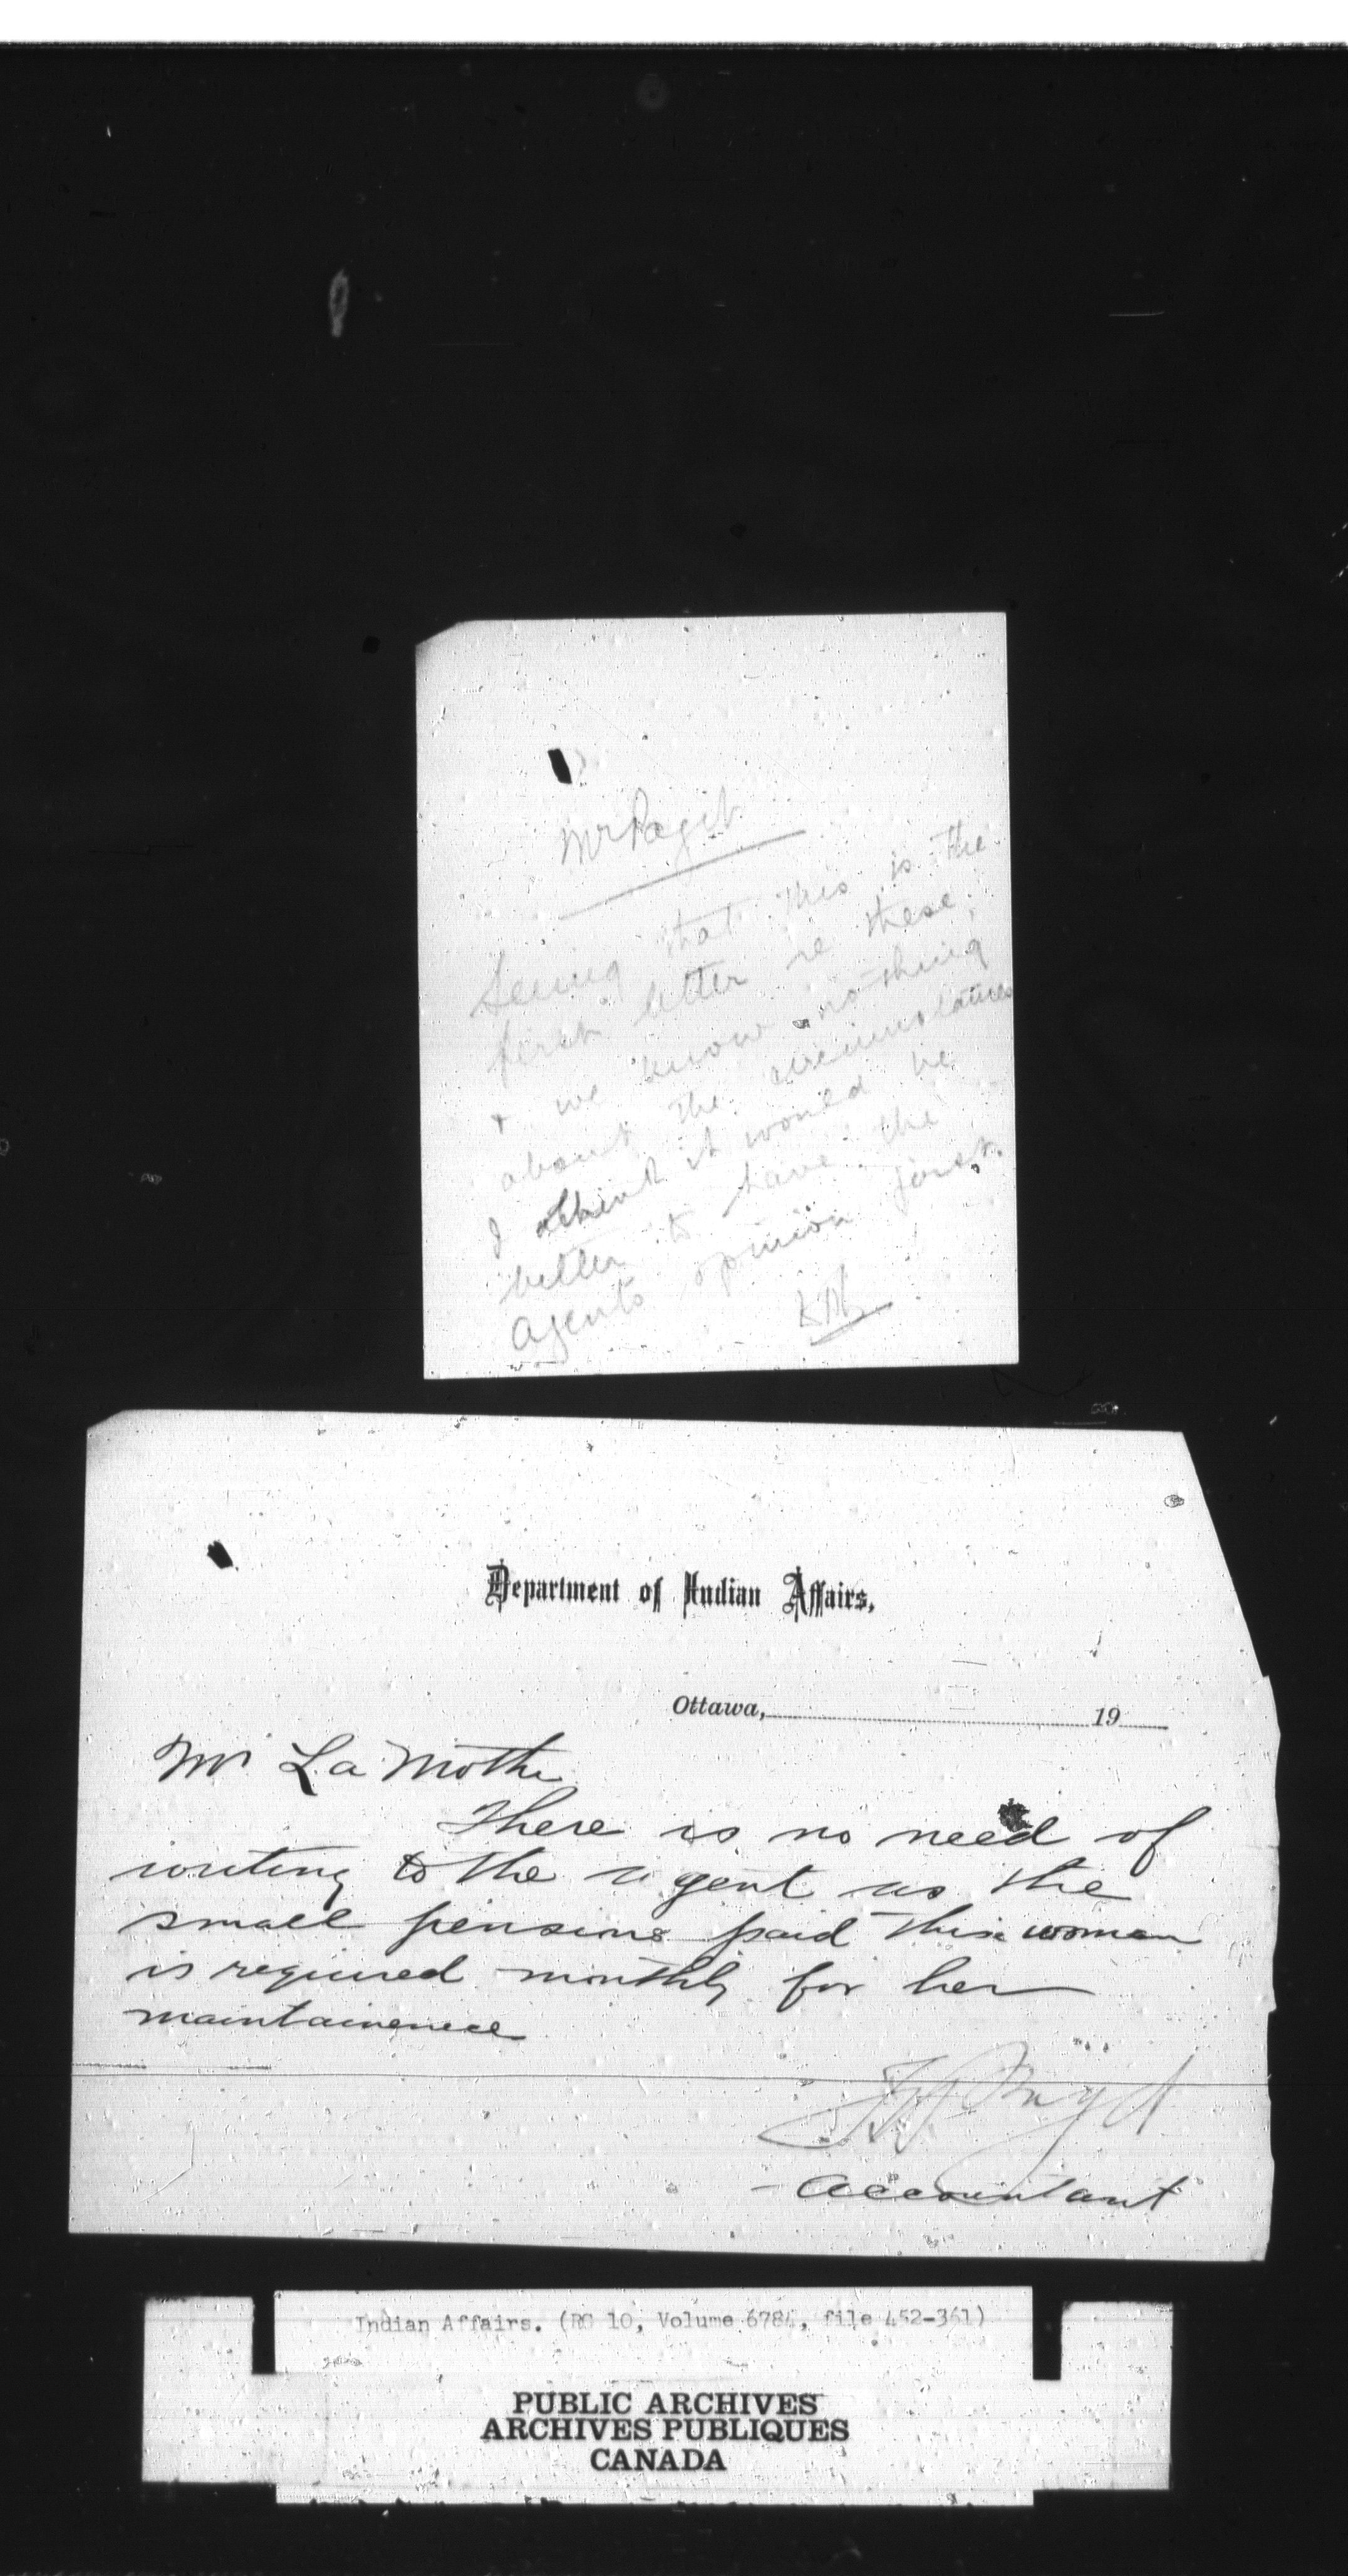 Mr Pagit
Seeing that this is the
first letter re these,
& we know nothing
about the circumstances
I think it would be
better to have the
agents opinion first.
Department of Indian Affairs,
Ottawa, 19
Mr La Mothe
There is no need of
writing to the agent as the
small pensions paid this woman
is required monthly for her
maintainence
Accountant
Indian Affairs. (RG 10, Volume 6784, file 452-361)
PUBLIC ARCHIVES
ARCHIVES PUBLIQUES
CANADA